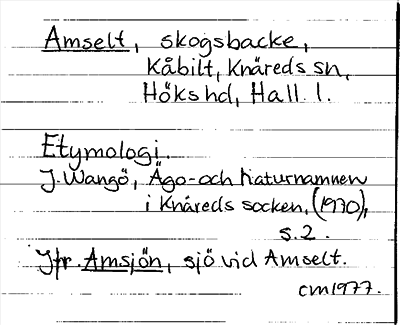 Amselt, skogsbacke,
Kåbilt, Knäreds sn,
Höks hd, Hall. l.
Etymologi.
J. Wangö, Ägo- och naturnamnen
i Knäreds socken, (1970),
s. 2.
Jfr Amsjön, sjö vid Amselt.
CM 1977.